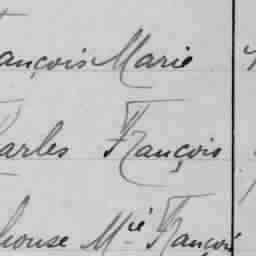 ançois Marie
arles François
honse Mie François